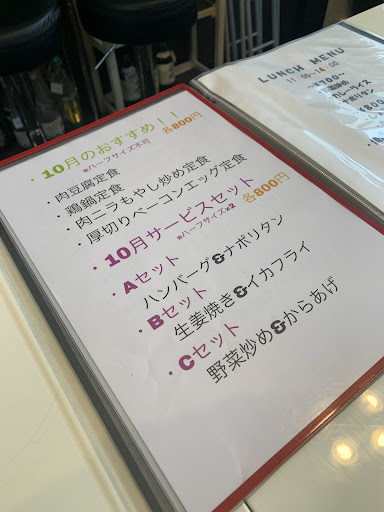 ・10月のおすすめ！！ 各800円
*ハーフサイズ不可
・肉豆腐定食
・鶏鍋定食
・肉ニラもやし炒め定食
・厚切りベーコンエッグ定食
・10月サービスセット 各800円
*ハーフサイズ×2
・Aセット
ハンバーグ&ナポリタン
・Bセット
生姜焼き&イカフライ
・Cセット
野菜炒め&からあげ
LUNCH MENU